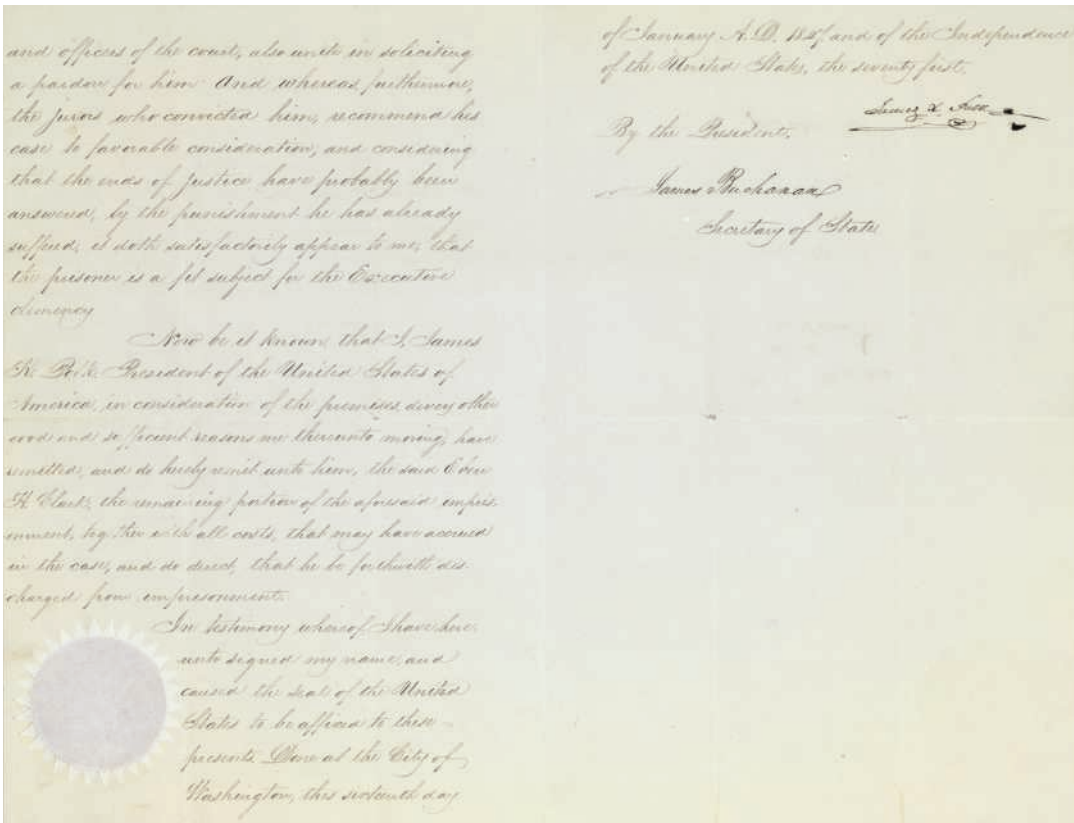 and officers of the court, also unite in soliciting
a pardon for him And whereas furthermore,
the jurors who convicted him, recommend his
case to favorable consideration, and considering
that the ends of Justice have probably been
answered, by the punishment he has already
suffered, it doth satisfactorily appear to me, that
the prisoner is a fit subject for the Executive
clemency
Now be it known, that I, James
K. Polk President of the United States of
America, in consideration of the premises, divers other
good and sufficient reasons me thereunto moving, have
remitted, and do hereby remit unto him, the said Eben
H. Clark, the remaining portion of the aforesaid impris-
onment, together with all costs, that may have accrued
in the case, and do direct, that he be forthwith dis-
charged from imprisonment.
In testimony whereof I have here-
unto signed my name, and
caused the seal of the United
States to be affixed to these
presents. Done at the City of
Washington, this sixteenth day
of January A.D. 1847 and of the Independence
of the United States, the seventy first.
James K. Polk
By the President,
James Buchanan
Secretary of State